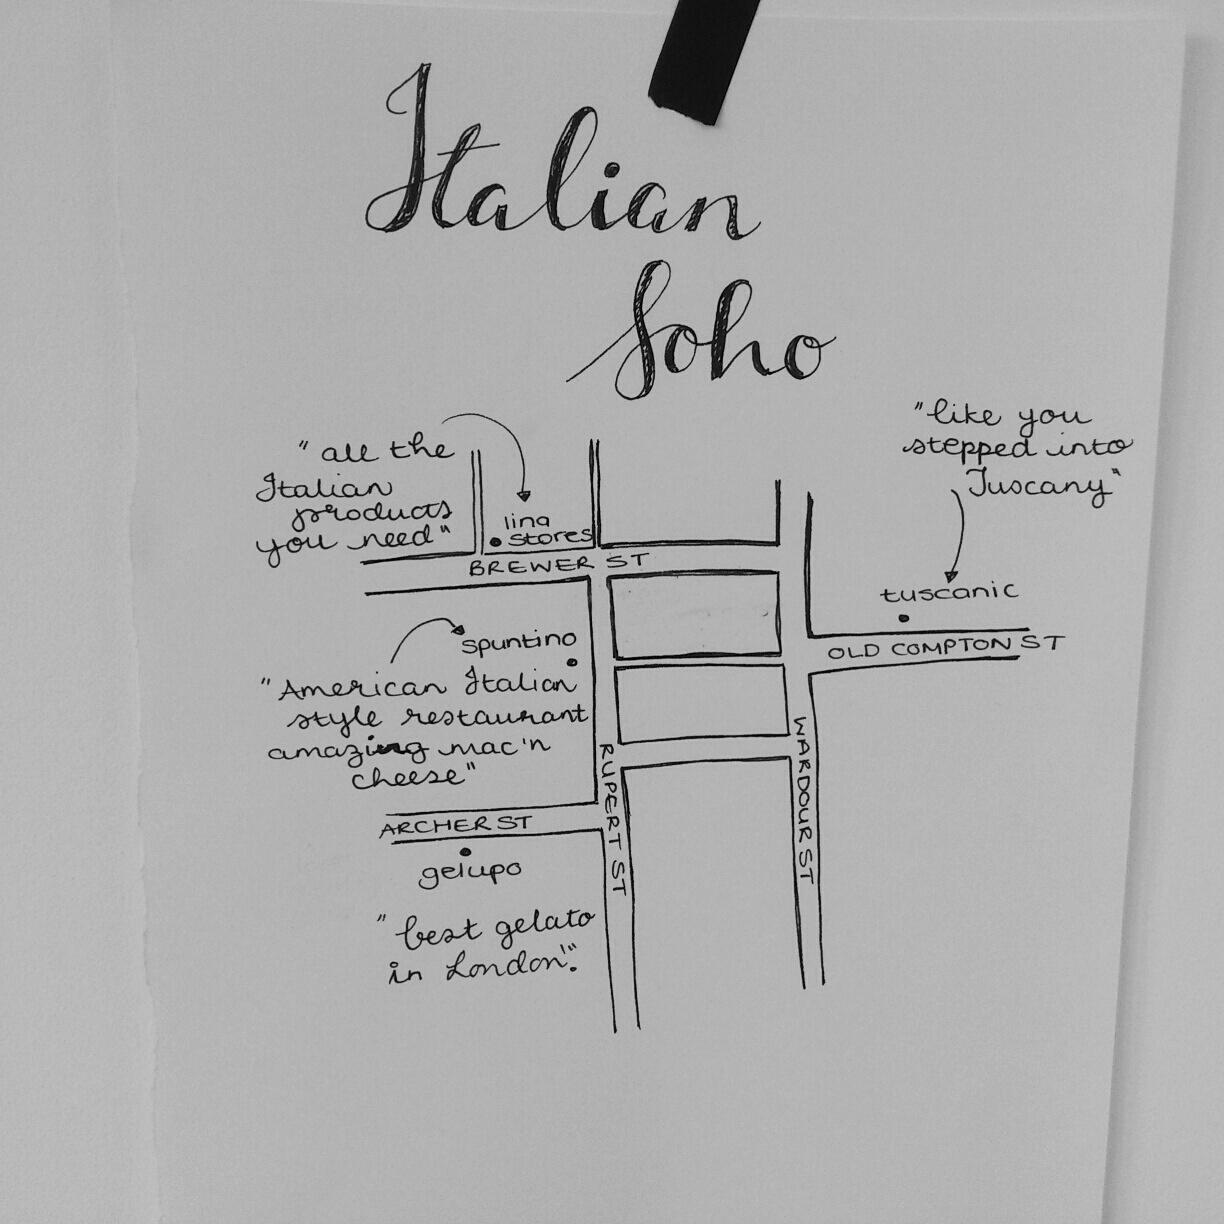 Italian
Soho
"all the
Italian
products
you need"
lina
stores
BREWER ST
"like you
stepped into
Tuscany"
tuscanic
OLD COMPTON ST
spuntino
"American Italian
style restaurant
amazing mac'n
cheese"
RUPERT ST
WARDOUR ST
ARCHER ST
gelupo
"best gelato
in London".